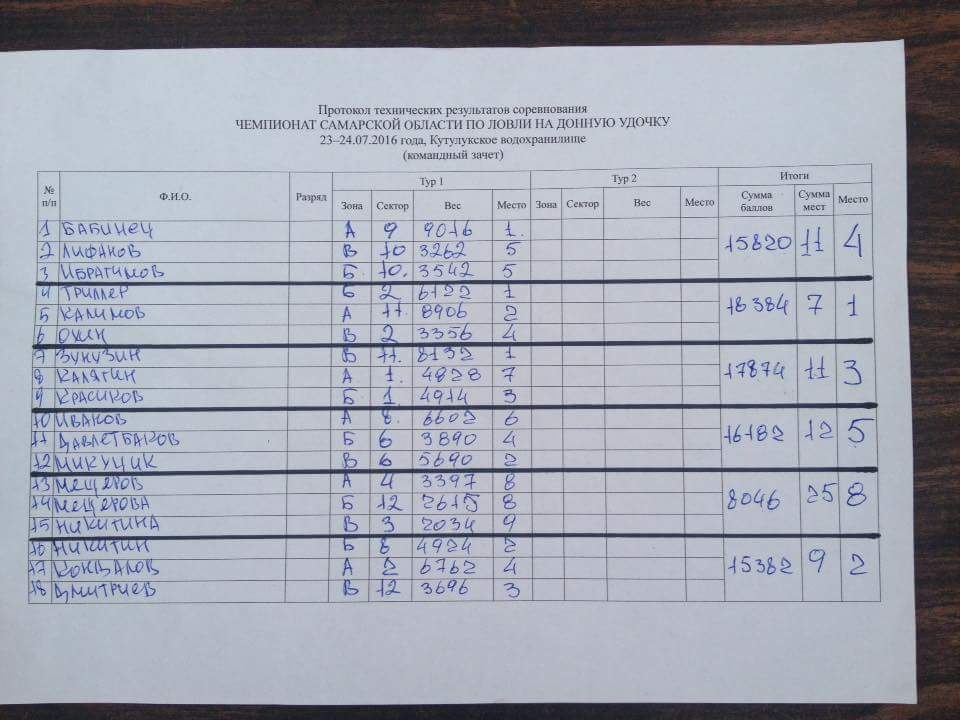 Протокол технических результатов соревнования
ЧЕМПИОНАТ САМАРСКОЙ ОБЛАСТИ ПО ЛОВЛИ НА ДОННУЮ УДОЧКУ
23–24.07.2016 года, Кутулукское водохранилище
(командный зачет)
№ п/п Ф.И.О. Разряд Тур 1 Тур 2 Итоги
Зона Сектор Вес Место Зона Сектор Вес Место Сумма баллов Сумма мест Место
1 БАБИНЕЦ А 9 9016 1. 15820 11 4
2 ЛИФАНОВ В 10 3262 5
3 ИБРАГИМОВ Б 10. 3542 5
4 ТРИЛЛЕР Б 2 6122 1 18384 7 1
5 КАЛИМОВ А 11. 8906 2
6 ОХИН В 2 3356 4
7 ЗУКУЗИН В 11. 8132 1 17874 11 3
8 КАЛЯГИН А 1. 4828 7
9 КРАСИКОВ Б 1. 4914 3
10 ИВАНОВ А 8. 6602 6 16182 12 5
11 ДАВЛЕТБАКОВ Б 6 3890 4
12 МИКУЦИК В 6 5690 2
13 МЕЩЕРОВ А 4 3397 8 8046 25 8
14 МЕЩЕРОВА Б 12 2615 8
15 НИКИТИНА В 3 2034 9
16 НИКИТИН Б 8 4924 2 15382 9 2
17 КОНДАЛОВ А 2 6762 4
18 ДМИТРИЕВ В 12 3696 3